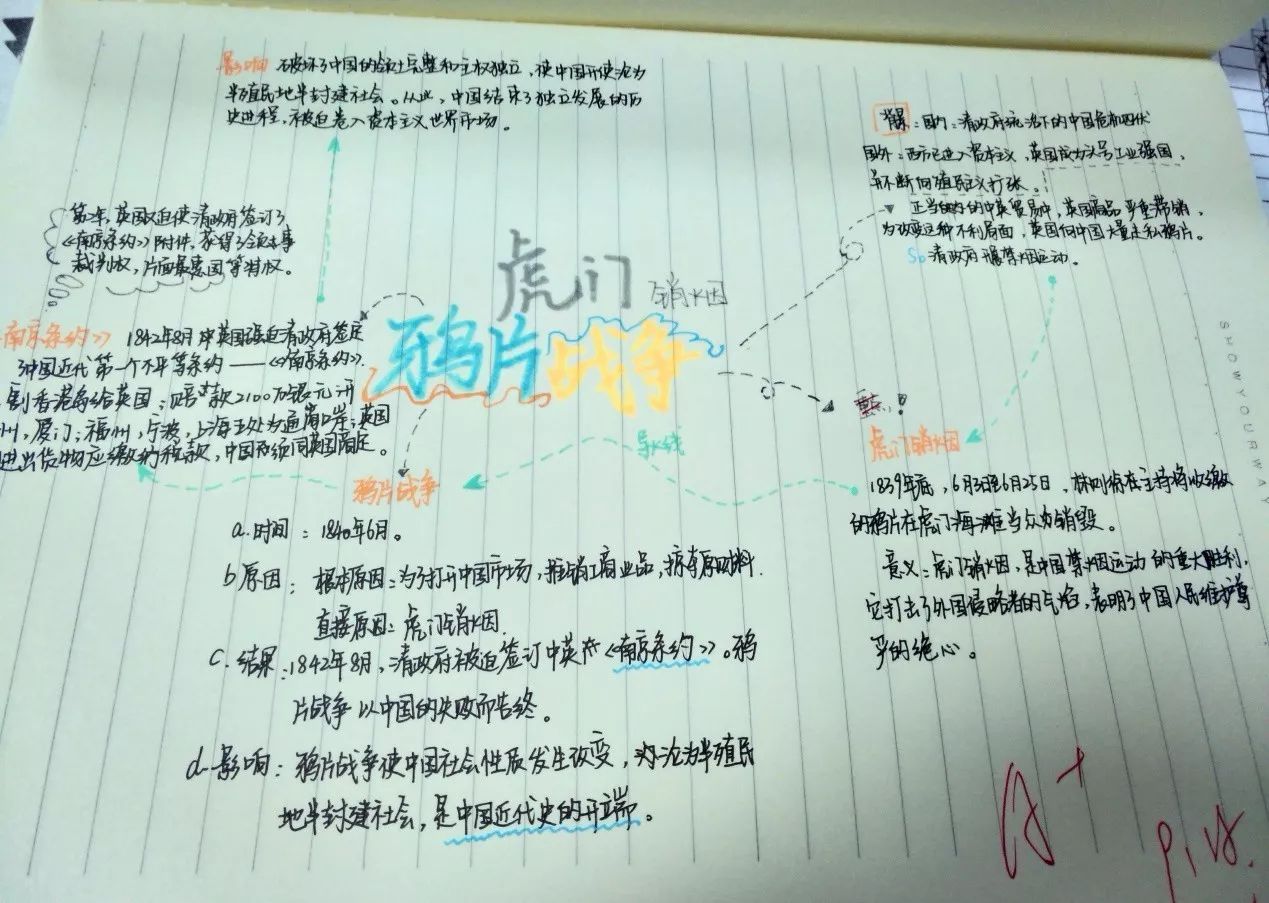 影响 破坏了中国的领土完整和主权独立，使中国开使沦为
半殖民地半封建社会。从此，中国结束了独立发展的历
史进程，被迫卷入资本主义世界市场。
背景：国内：清政府统治下的中国危机四伏
国外：西方已进入资本主义，英国成为头号工业强国，
并不断向殖民主义扩张。
正当的的中英贸易中，英国商品严重滞销，
为改变这种不利局面，英国向中国大量走私鸦片。
Sb 清政府 禁烟运动。
第二年，英国又迫使清政府签订了
《南京条约》附件，获得了领事
裁判权，片面最惠国等特权。
虎门 销烟
鸦片战争
南京条约》 1842年8月 英国强迫清政府签定
了中国近代第一个不平等条约——《南京条约》.
割香港岛给英国；赔款2100万银元；开
州，厦门；福州，宁波，上海五处为通商口岸；英国
进出货物应缴纳税款，中国须同英国商定。
导火线
重点！
虎门销烟
1839年底，6月3日至6月25日，林则徐在主持将收缴
的鸦片在虎门海滩当众为销毁。
意义：虎门销烟，是中国禁烟运动的重大胜利，
它打击了外国侵略者的气焰，表明了中国人民维护尊
严的绝心。
鸦片战争
a.时间：1840年6月。
b原因：根本原因：为了打开中国市场，推销工商业品，掠夺原材料.
直接原因：虎门销烟.
c.结果：1842年8月，清政府被迫签订中英《南京条约》。鸦
片战争以中国的失败而告终。
d.影响：鸦片战争使中国社会性质发生改变，沦为半殖民
地半封建社会，是中国近代史的开端。
SHOW YOUR WAY
A+